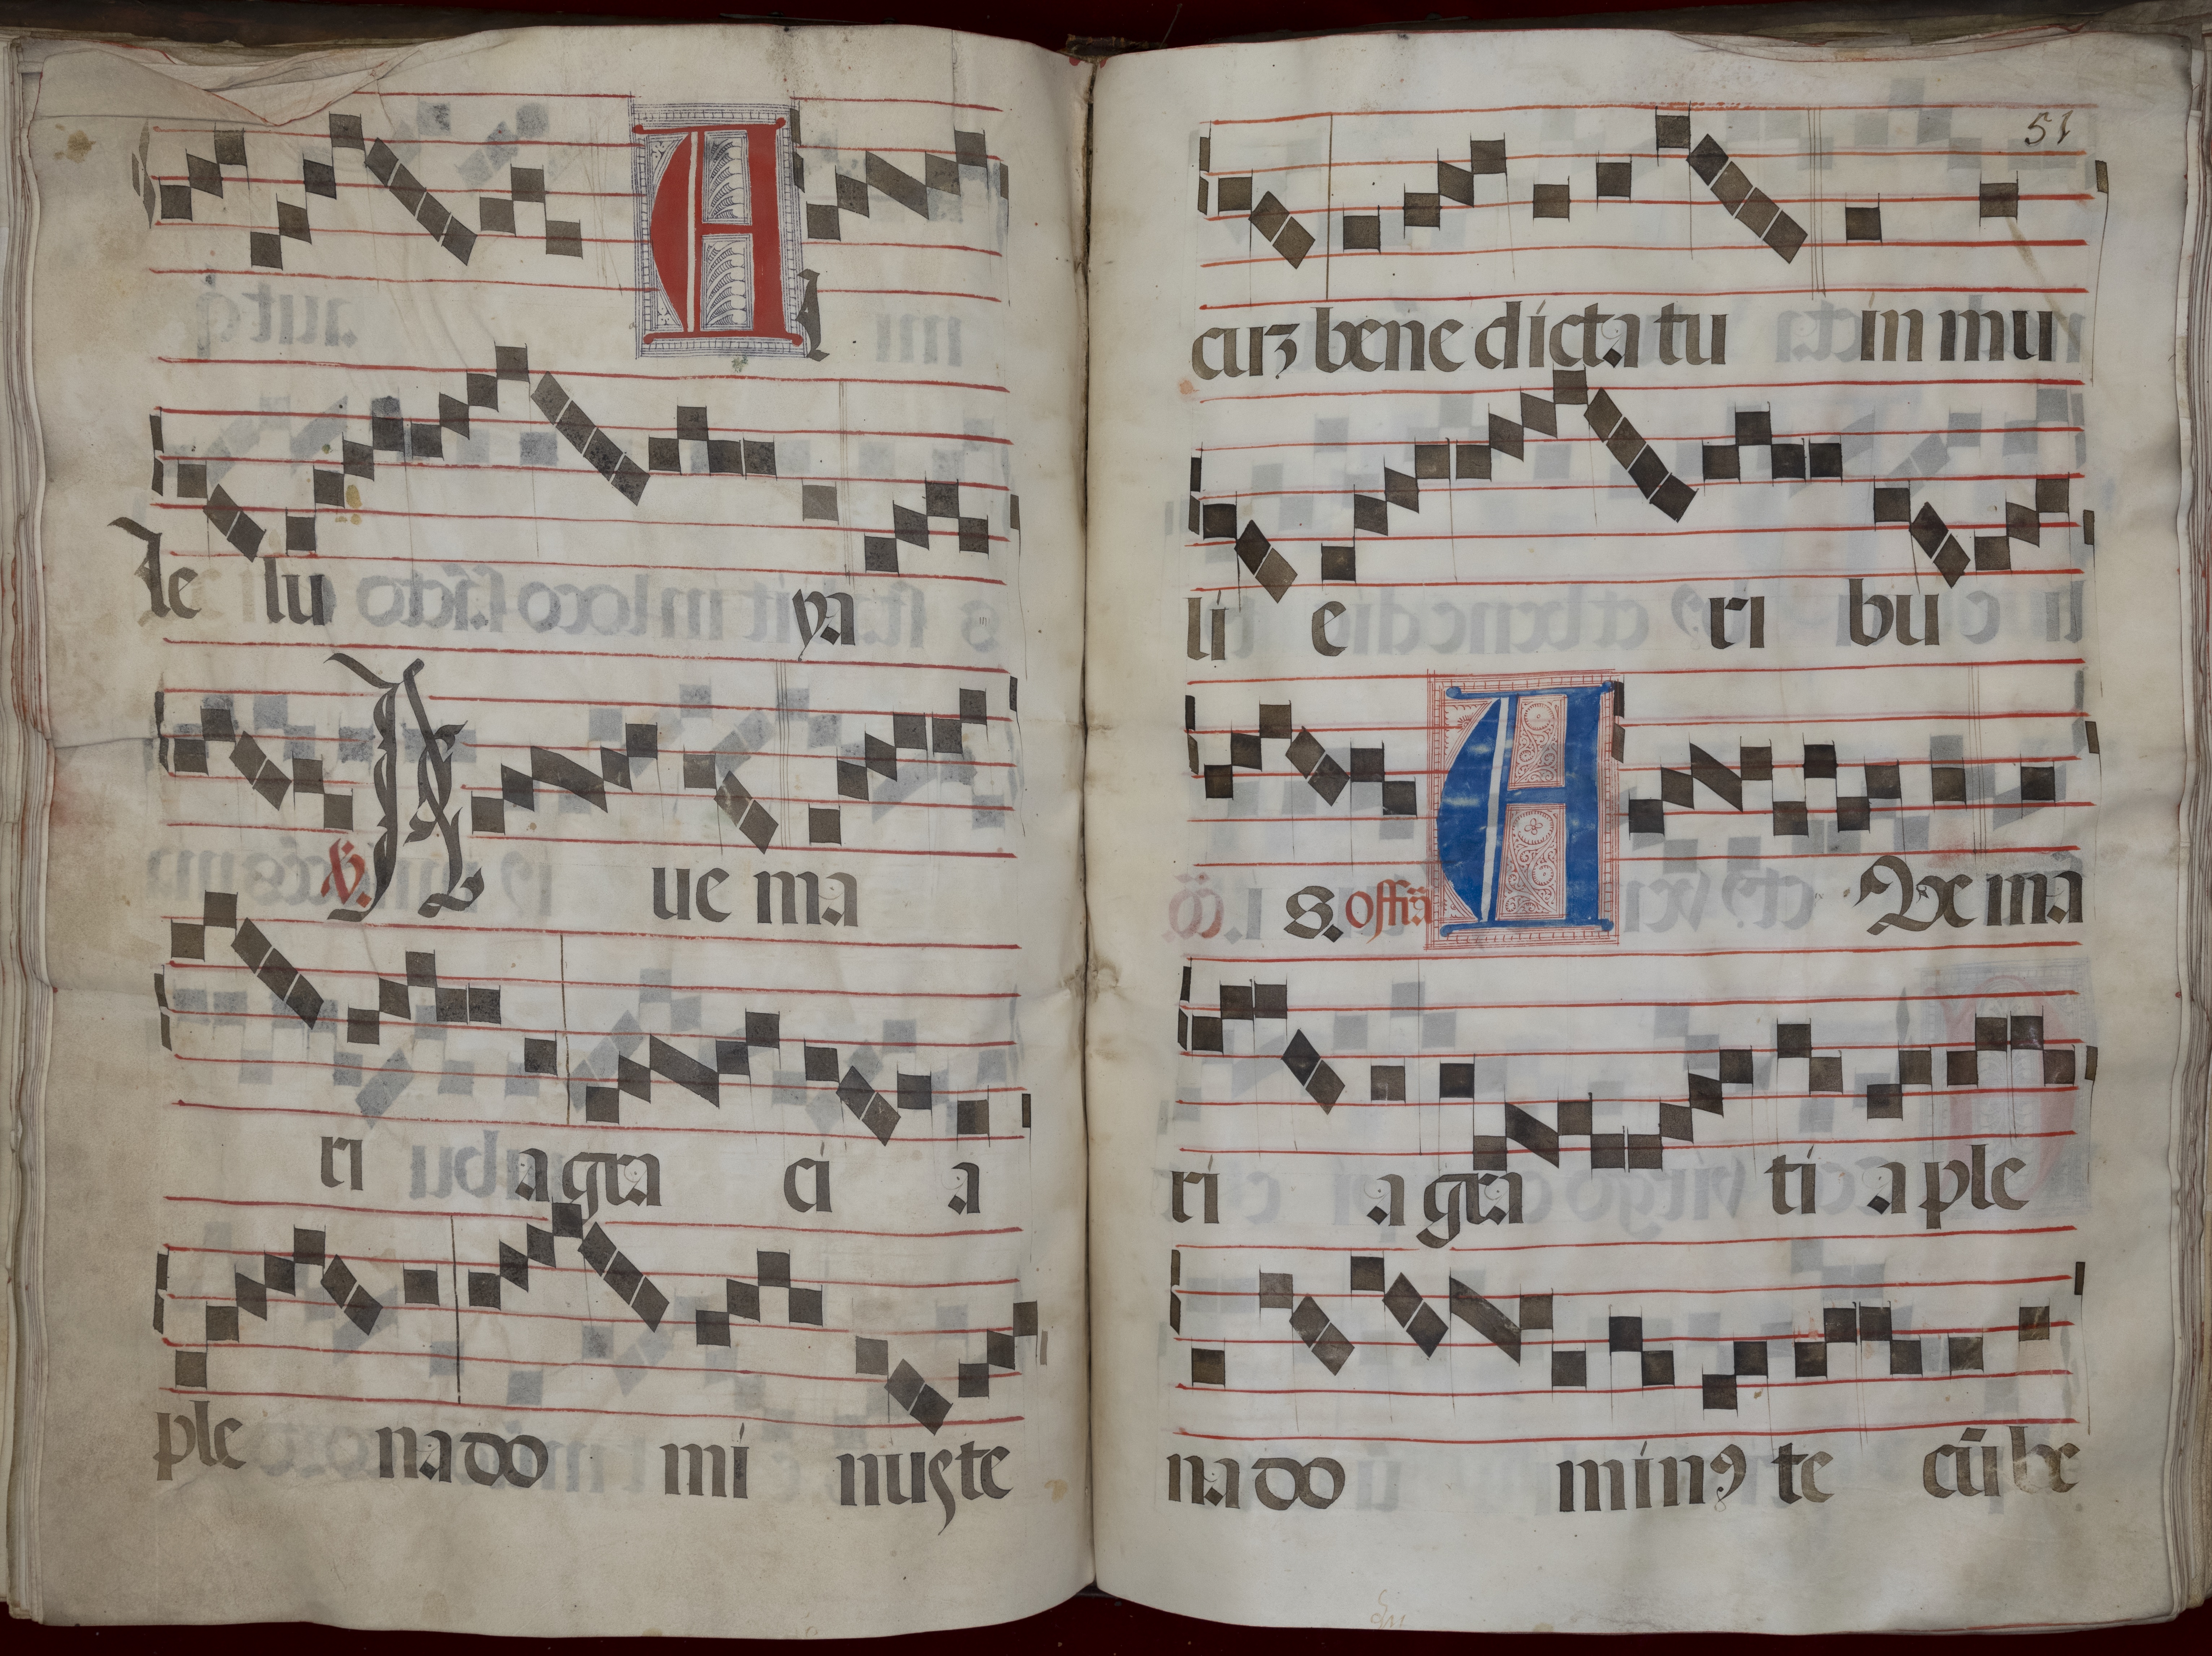 Al
le lu ya
℣. A ue ma
ri a gra ci a
ple na do mi nuſ te
51
cuȝ bene dicta tu in mu
li e ri bu
s. offr̃a A Ue mã
ri a gra ti a ple
na do minꝰ te cũ be